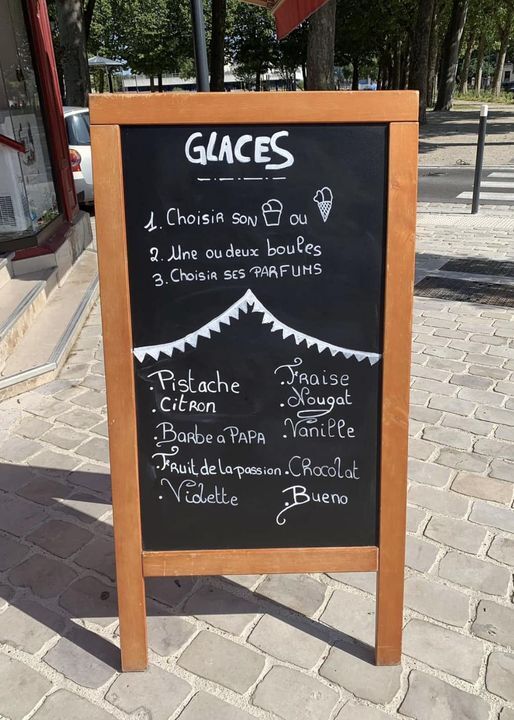 GLACES
1. Choisir son ou
2. Une ou deux boules
3. Choisir ses PARFUMS
.Pistache
.Citron
.Barbe à PAPA
.Fruit de la passion
.Violette
.Fraise
.Nougat
.Vanille
.Chocolat
.Bueno